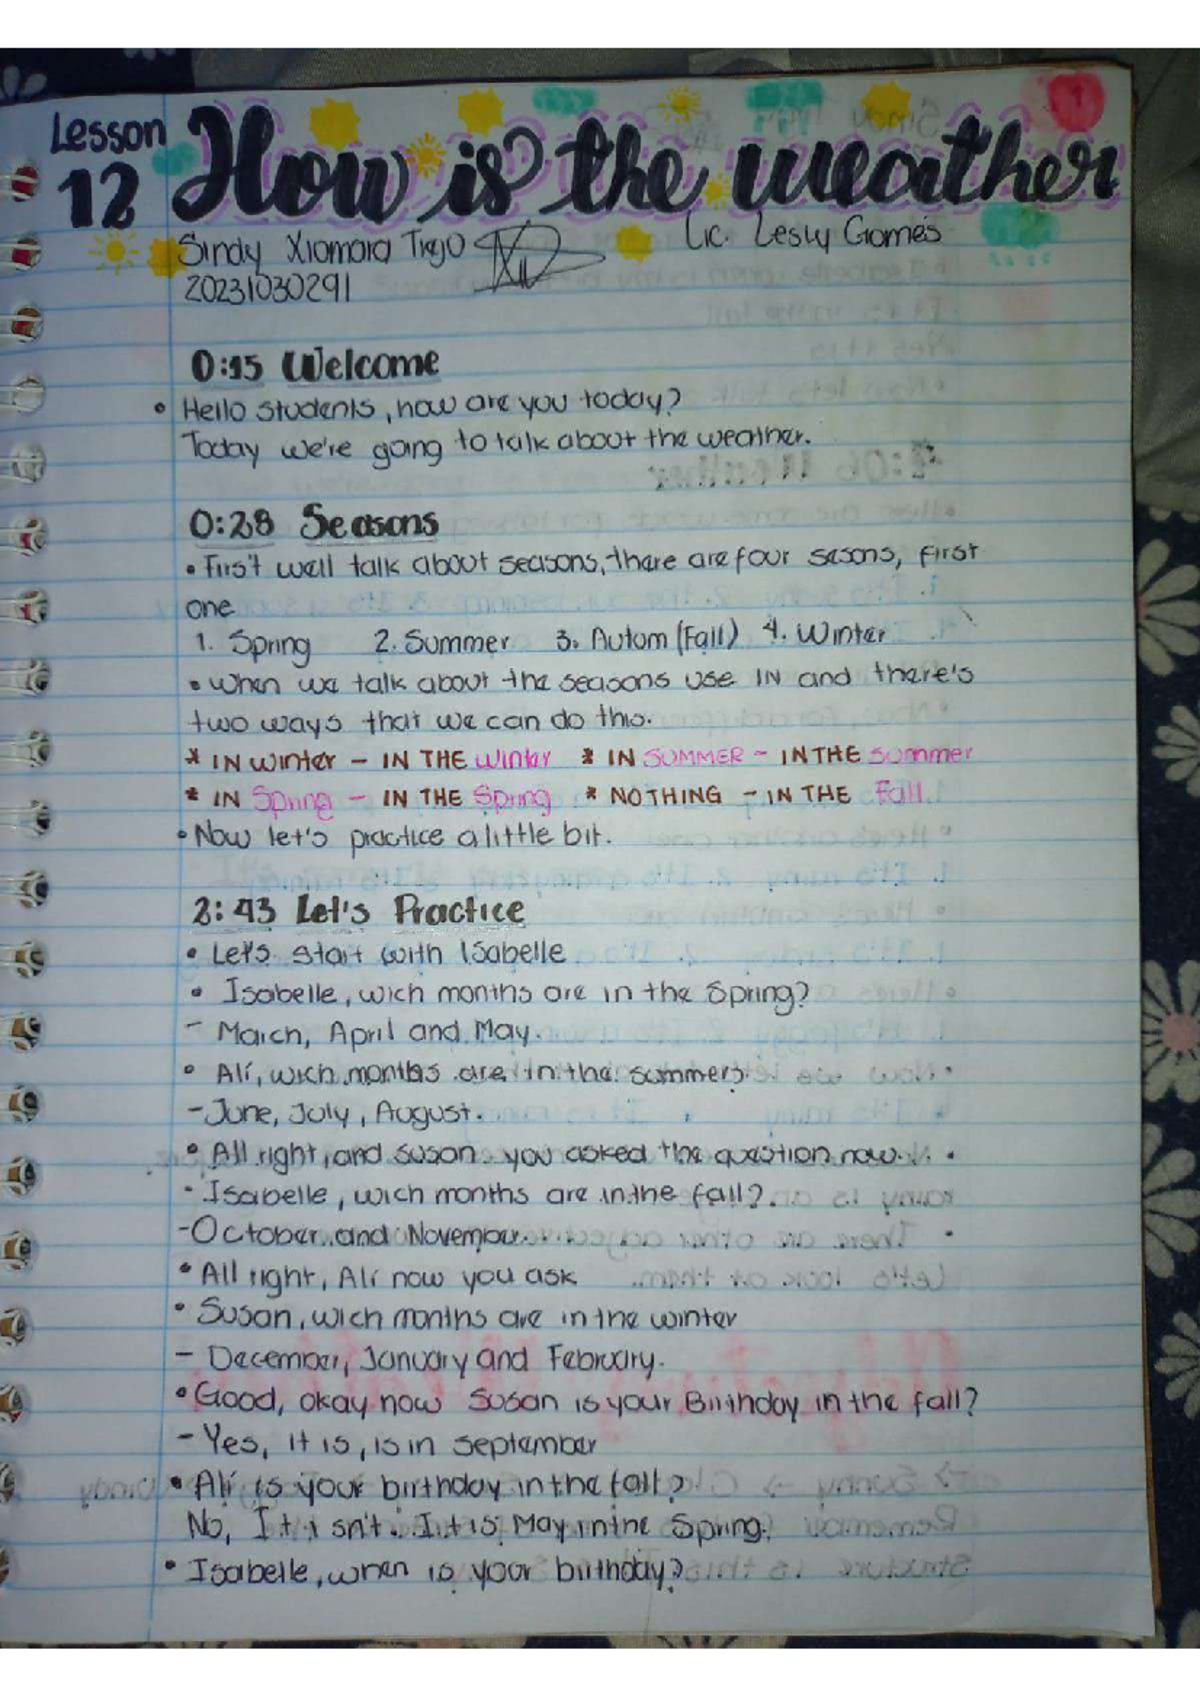 Lesson
12 How is the weather
Sindy Xiomara Trejo
Lic. Lesly Gomés
20231030291
0:15 Welcome
• Hello students, how are you today?
Today we're going to talk about the weather.
0:28 Seasons
• First well talk about seasons, there are four sesons, first
one
1. Spring 2. Summer 3. Autom (Fall) 4. Winter
• When we talk about the seasons use IN and there's
two ways that we can do this.
* IN winter - IN THE winter * IN SUMMER - IN THE summer
* IN Spring - IN THE Spring * NOTHING - IN THE Fall
• Now let's practice a little bit.
2:43 Let's Practice
• Let's start with Isabelle
• Isabelle, wich months are in the Spring?
- March, April and May.
• Alí, wich months are in the summer?
- June, July, August.
• All right, and suson you asked the question now.
- Isabelle, wich months are in the fall?
- October and November.
• All right, Alí now you ask
• Susan, wich months are in the winter
- December, January and February.
• Good, okay now Susan is your Birthday in the fall?
- Yes, it is, is in September
• Alí is your birthday in the fall?
No, It isn't. It is May in the Spring.
• Isabelle, when is your birthday?